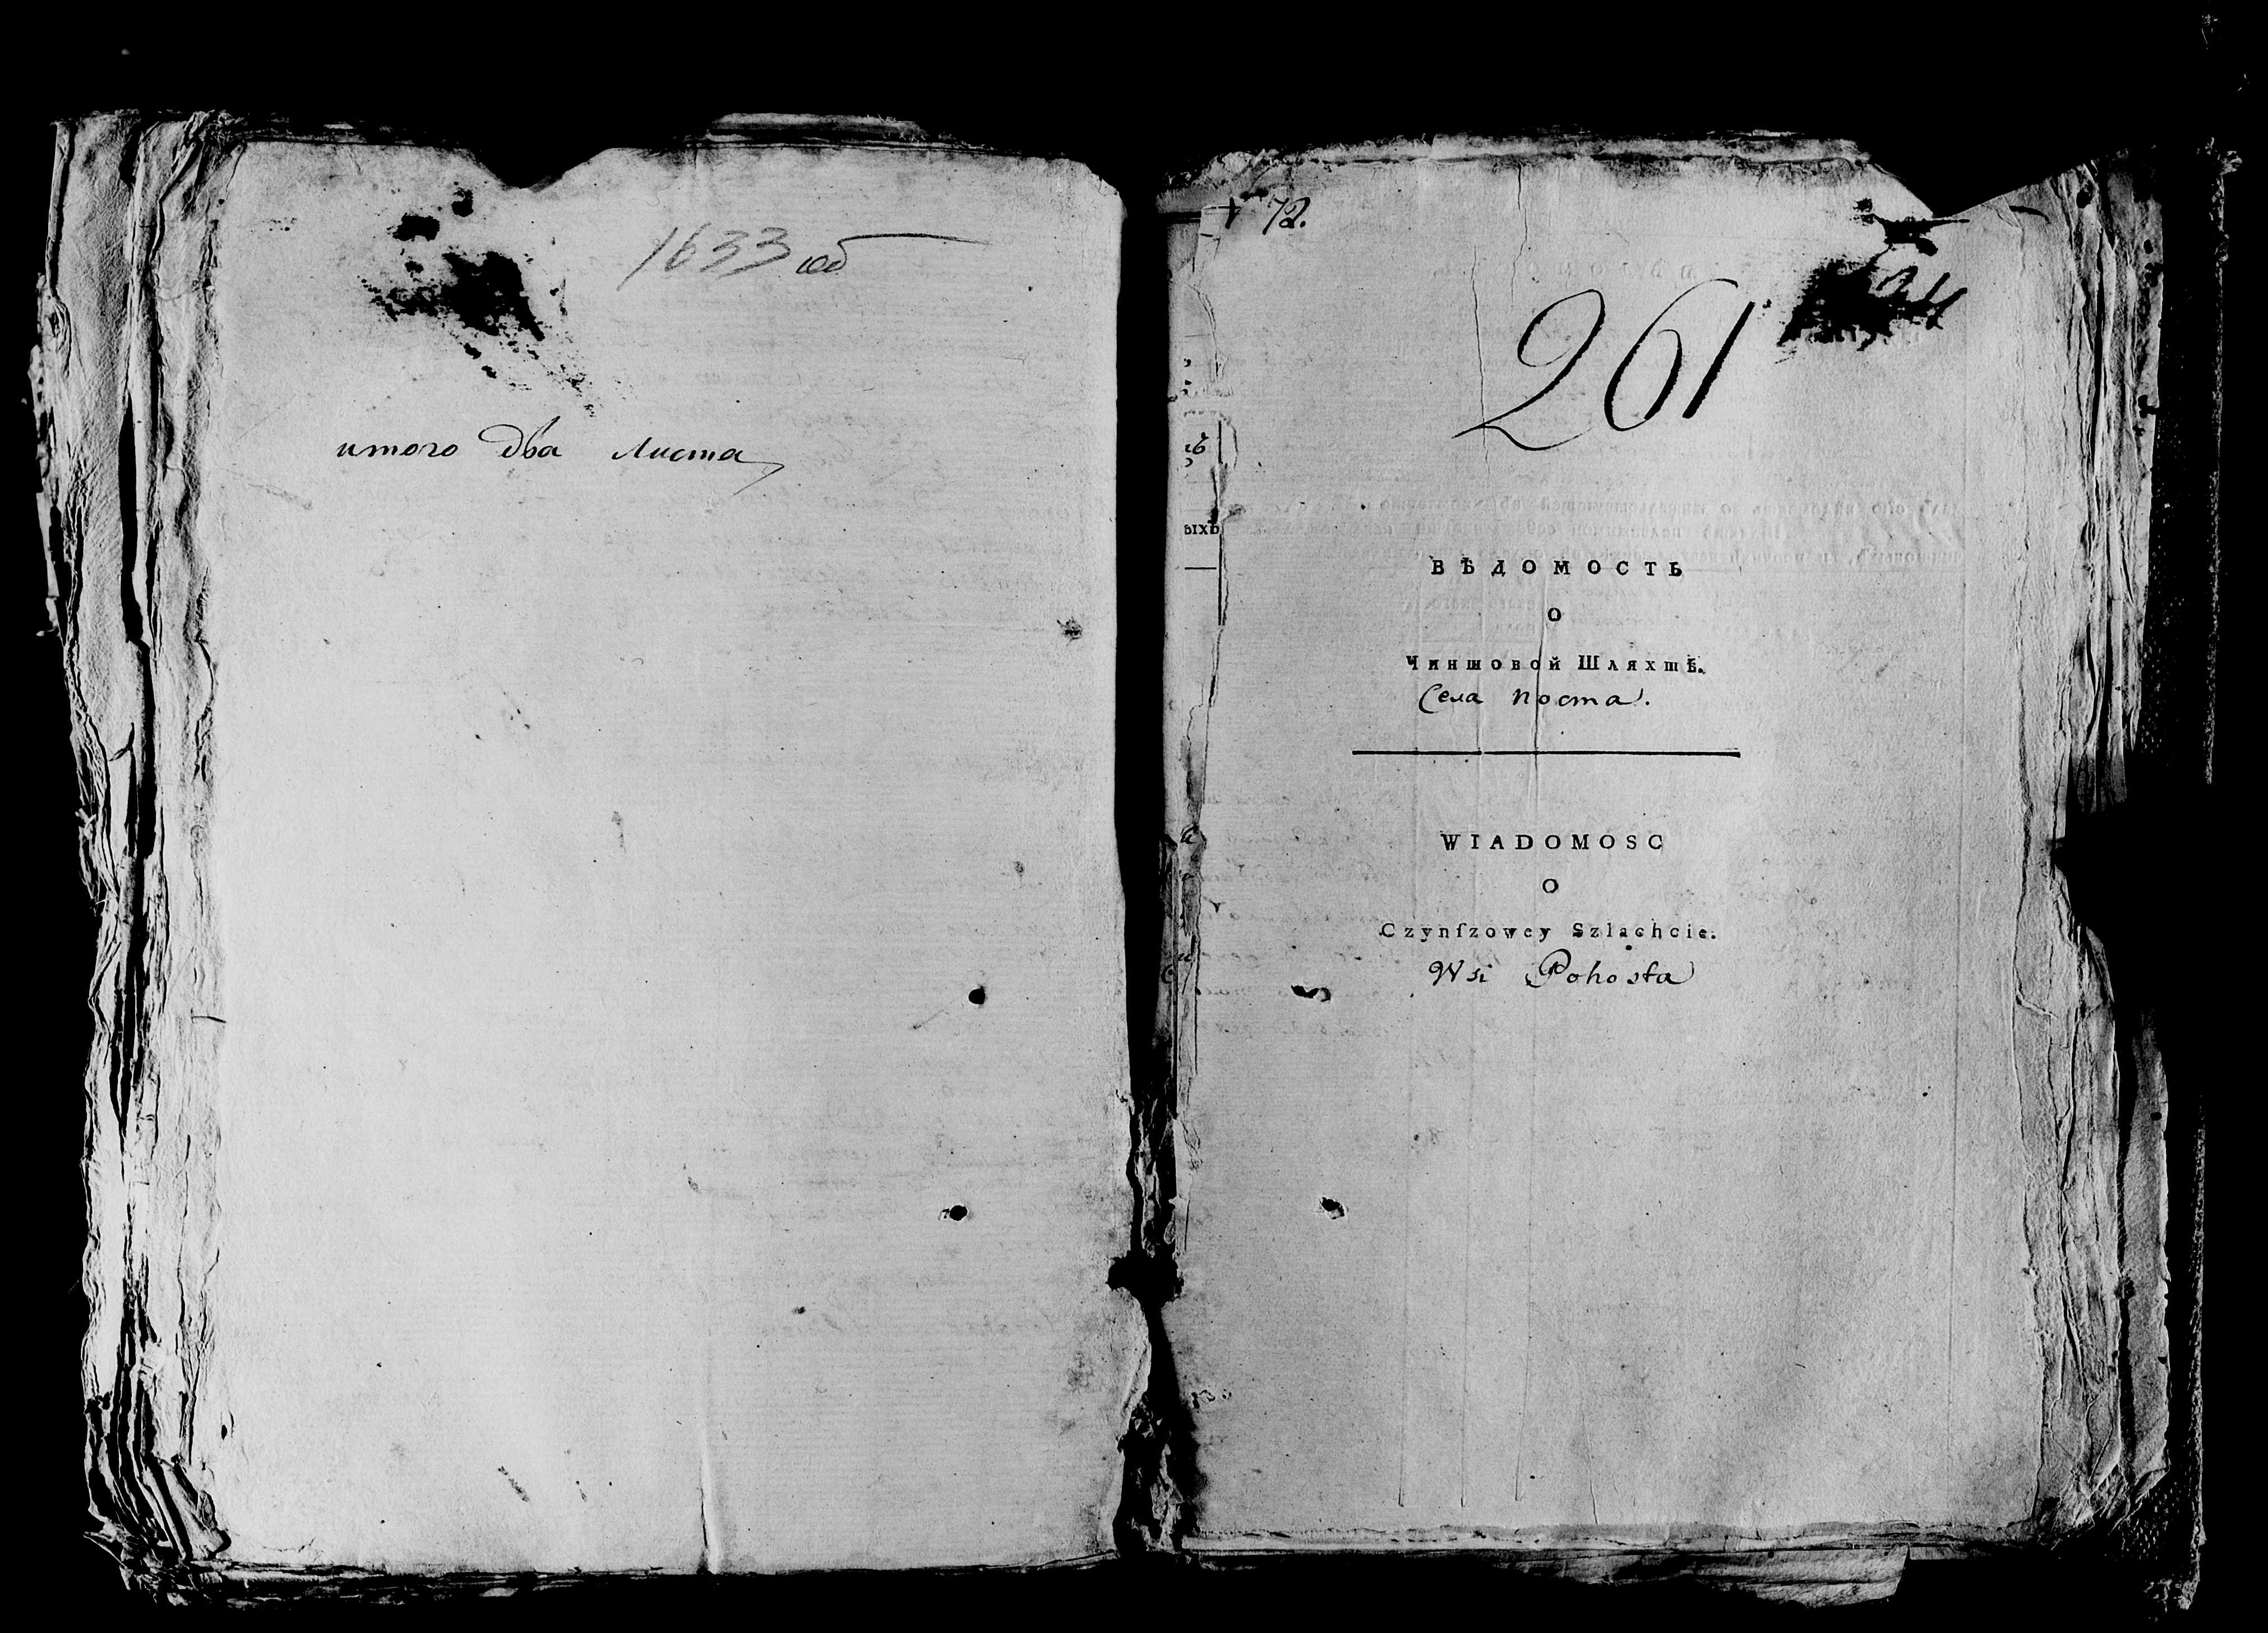 1633 об
итого два листа
72.
261
ыхъ
ВѢДОМОСТЬ
О
Чиншовой Шляхтѣ.
Села Поста.
WIADOMOSC
O
Czynſzowey Szlachcie.
Wsi Pohosta